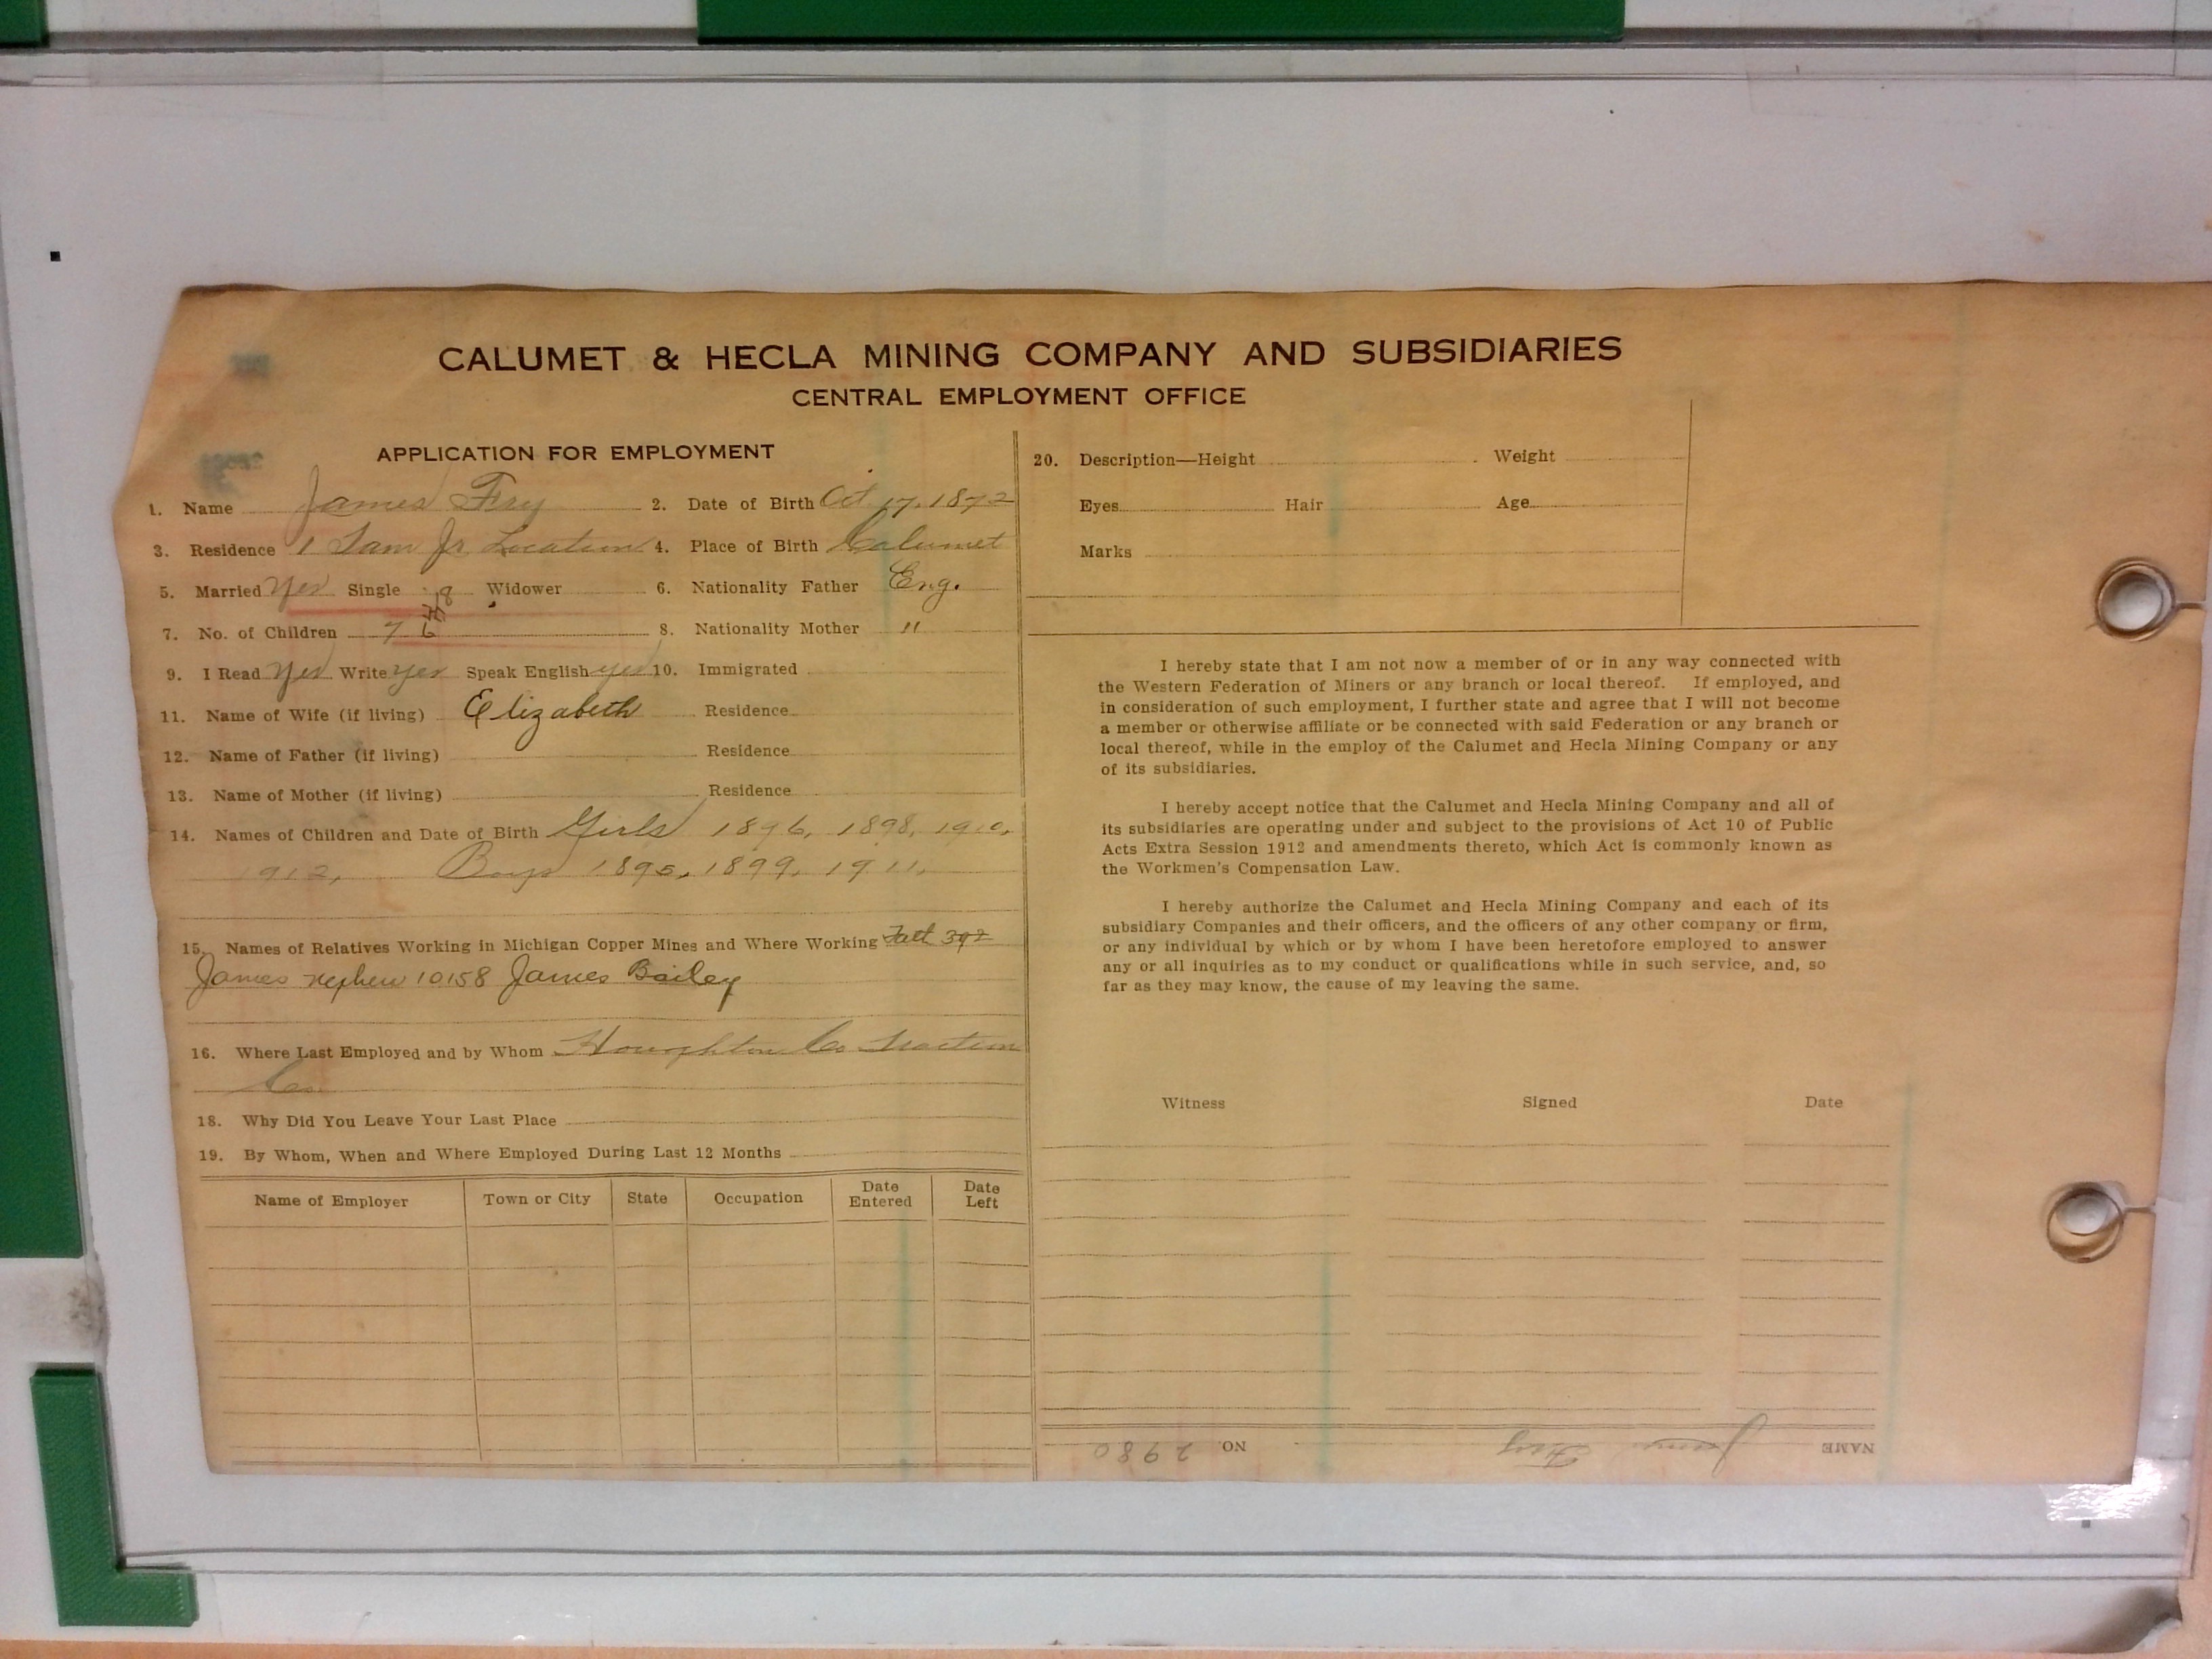 CALUMET & HECLA MINING COMPANY AND SUBSIDIARIES
CENTRAL EMPLOYMENT OFFICE
APPLICATION FOR EMPLOYMENT
1. Name James Fry 2. Date of Birth Oct 17, 1872
3. Residence 1 Tam Jr Location 4. Place of Birth Calumet
5. Married Yes Single Widower 6. Nationality Father Eng.
7. No. of Children 7 6 8. Nationality Mother "
9. I Read Yes Write yes Speak English yes 10. Immigrated
11. Name of Wife (if living) Elizabeth Residence
12. Name of Father (if living) Residence
13. Name of Mother (if living) Residence
14. Names of Children and Date of Birth Girls 1896, 1898, 1910,
1912, Boys 1895, 1899, 1911,
15. Names of Relatives Working in Michigan Copper Mines and Where Working
James nephew 10158 James Bailey
16. Where Last Employed and by Whom Houghton Co Traction
Co.
18. Why Did You Leave Your Last Place
19. By Whom, When and Where Employed During Last 12 Months
Name of Employer Town or City State Occupation Date Entered Date Left
20. Description—Height Weight
Eyes Hair Age
Marks
I hereby state that I am not now a member of or in any way connected with
the Western Federation of Miners or any branch or local thereof. If employed, and
in consideration of such employment, I further state and agree that I will not become
a member or otherwise affiliate or be connected with said Federation or any branch or
local thereof, while in the employ of the Calumet and Hecla Mining Company or any
of its subsidiaries.
I hereby accept notice that the Calumet and Hecla Mining Company and all of
its subsidiaries are operating under and subject to the provisions of Act 10 of Public
Acts Extra Session 1912 and amendments thereto, which Act is commonly known as
the Workmen's Compensation Law.
I hereby authorize the Calumet and Hecla Mining Company and each of its
subsidiary Companies and their officers, and the officers of any other company or firm,
or any individual by which or by whom I have been heretofore employed to answer
any or all inquiries as to my conduct or qualifications while in such service, and, so
far as they may know, the cause of my leaving the same.
Witness Signed Date
NAME James Fry NO. 2980